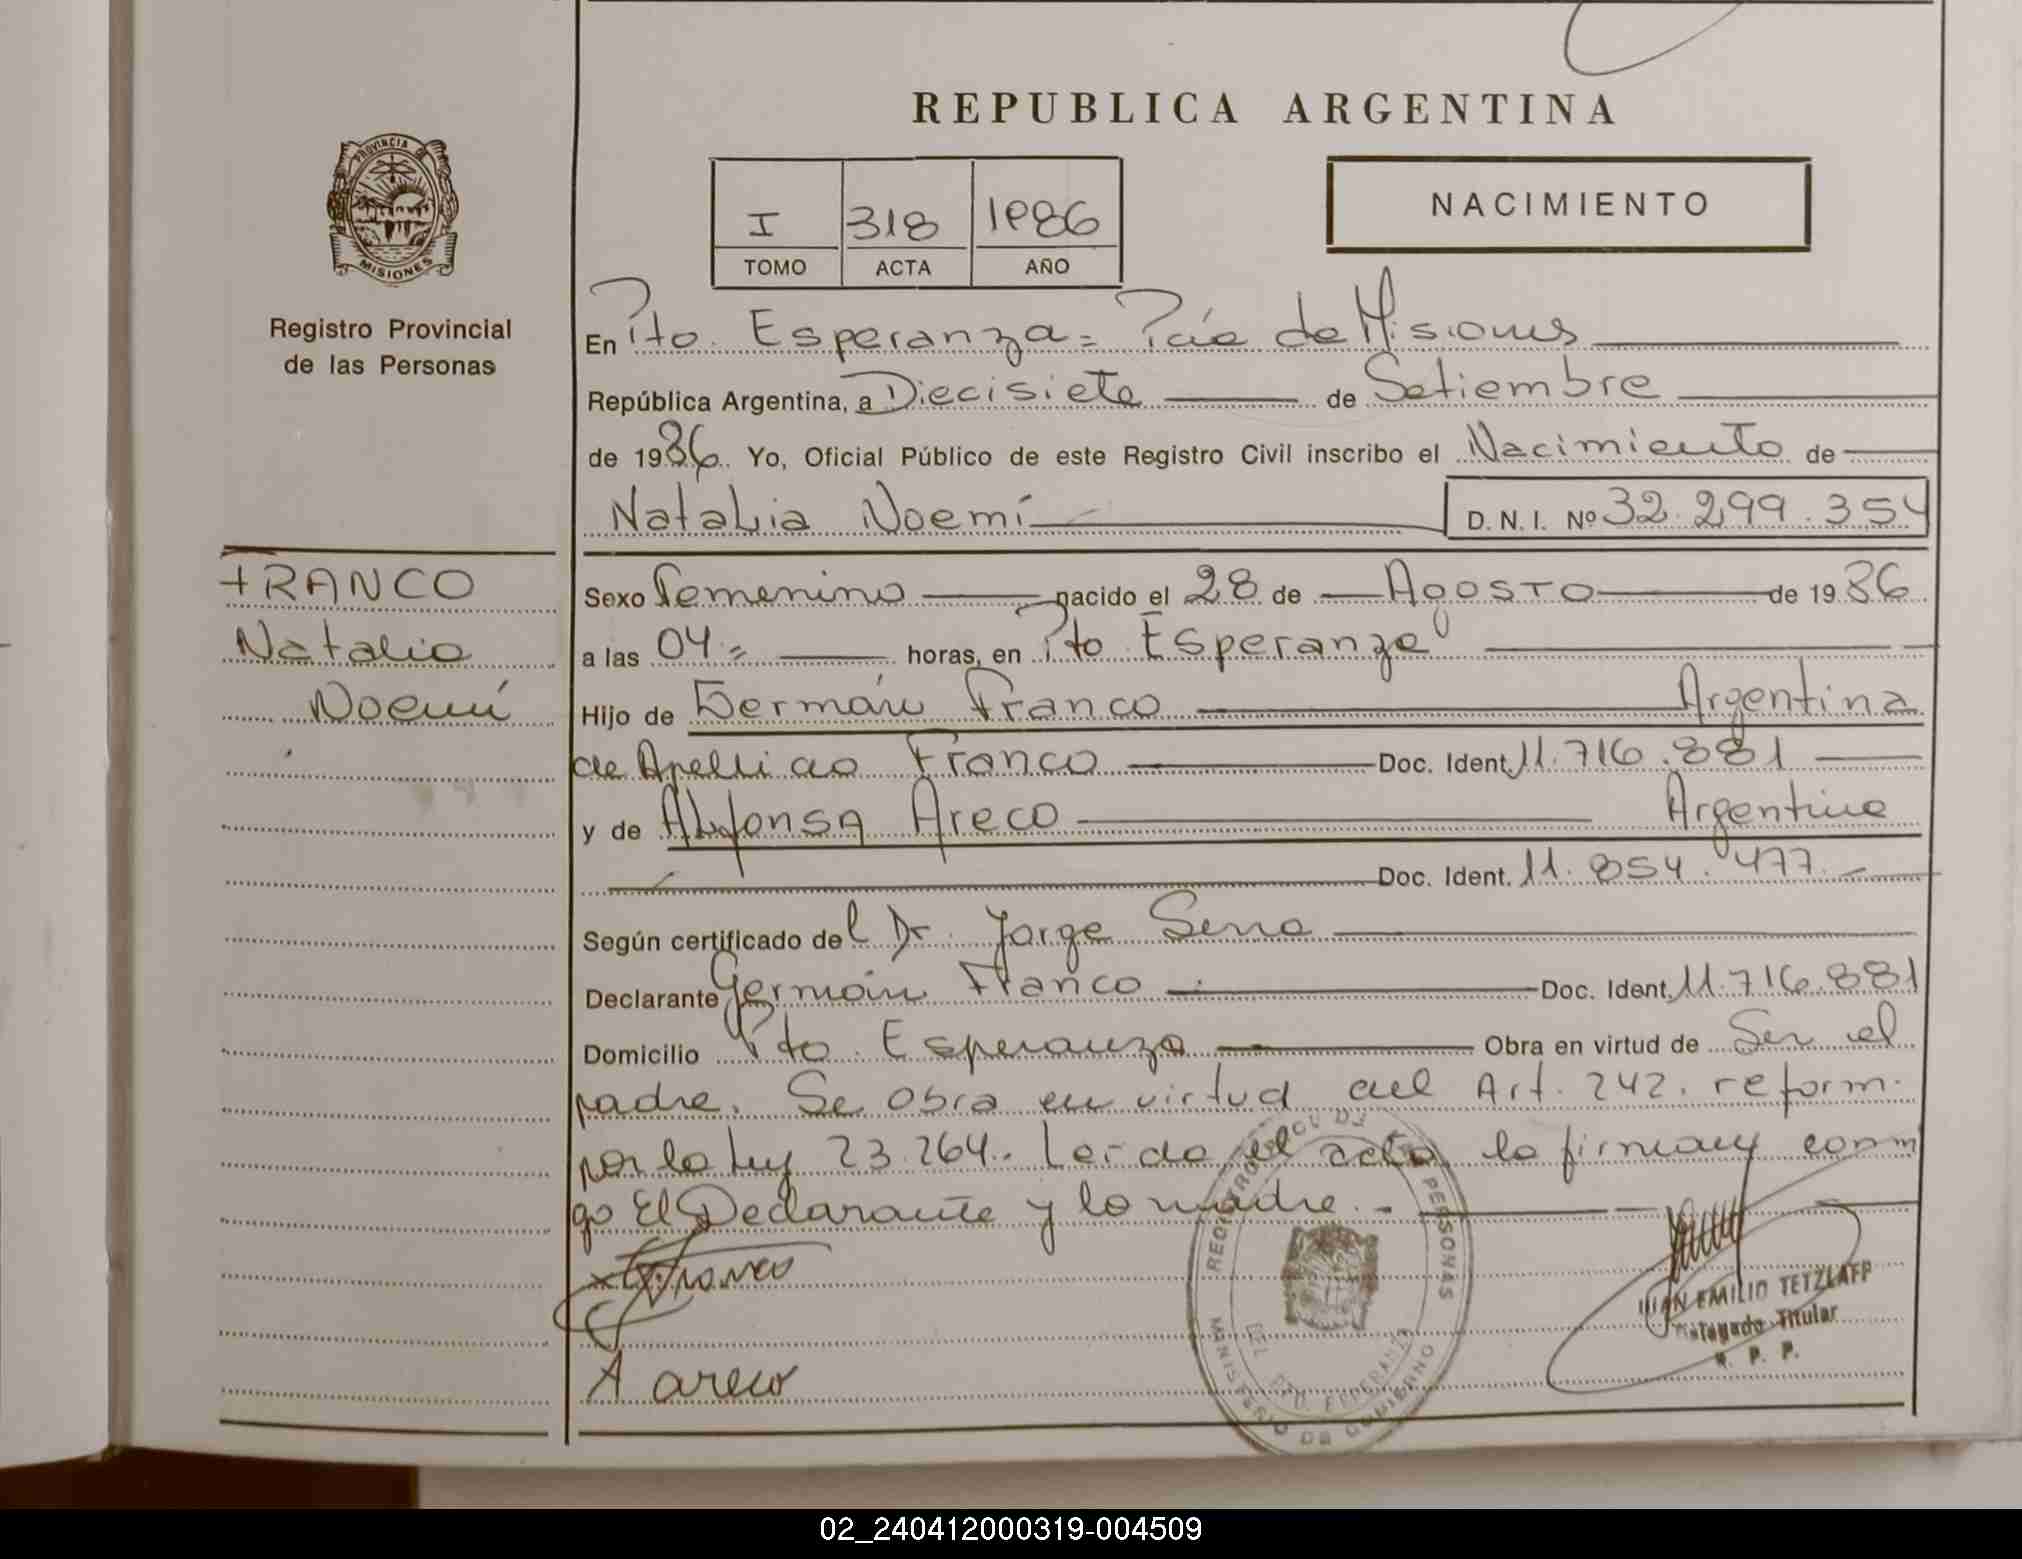 REPUBLICA ARGENTINA
PROVINCIA DE
MISIONES
Registro Provincial
de las Personas
I 318 1986
TOMO ACTA AÑO
NACIMIENTO
En Pto. Esperanza = Pcia de Misiones
República Argentina, a Diecisiete de Setiembre
de 1986. Yo, Oficial Público de este Registro Civil inscribo el Nacimiento de
Natalia Noemí D. N. I. Nº 32.299.354
FRANCO
Natalia
Noemí
Sexo Femenino nacido el 28 de Agosto de 1986
a las 04 = horas, en Pto Esperanza
Hijo de Germán Franco Argentina
de Apellido Franco Doc. Ident. 11.716.881
y de Alfonsa Areco Argentina
Doc. Ident. 11.854.477.-
Según certificado del Dr. Jorge Serra
Declarante Germán Franco Doc. Ident. 11.716.881
Domicilio Pto. Esperanza Obra en virtud de Ser el
padre. Se obra en virtud del Art. 242. reform.
por la Ley 23.264. Leida el acta, la firman conmi
go El Declarante y la madre. -
x G. Franco
A areco
REGISTRO PERSONAS
MINISTERIO DE GOBIERNO
PTO. ESPERANZA
JUAN EMILIO TETZLAFF
Delegado Titular
R. P. P.
02_240412000319-004509